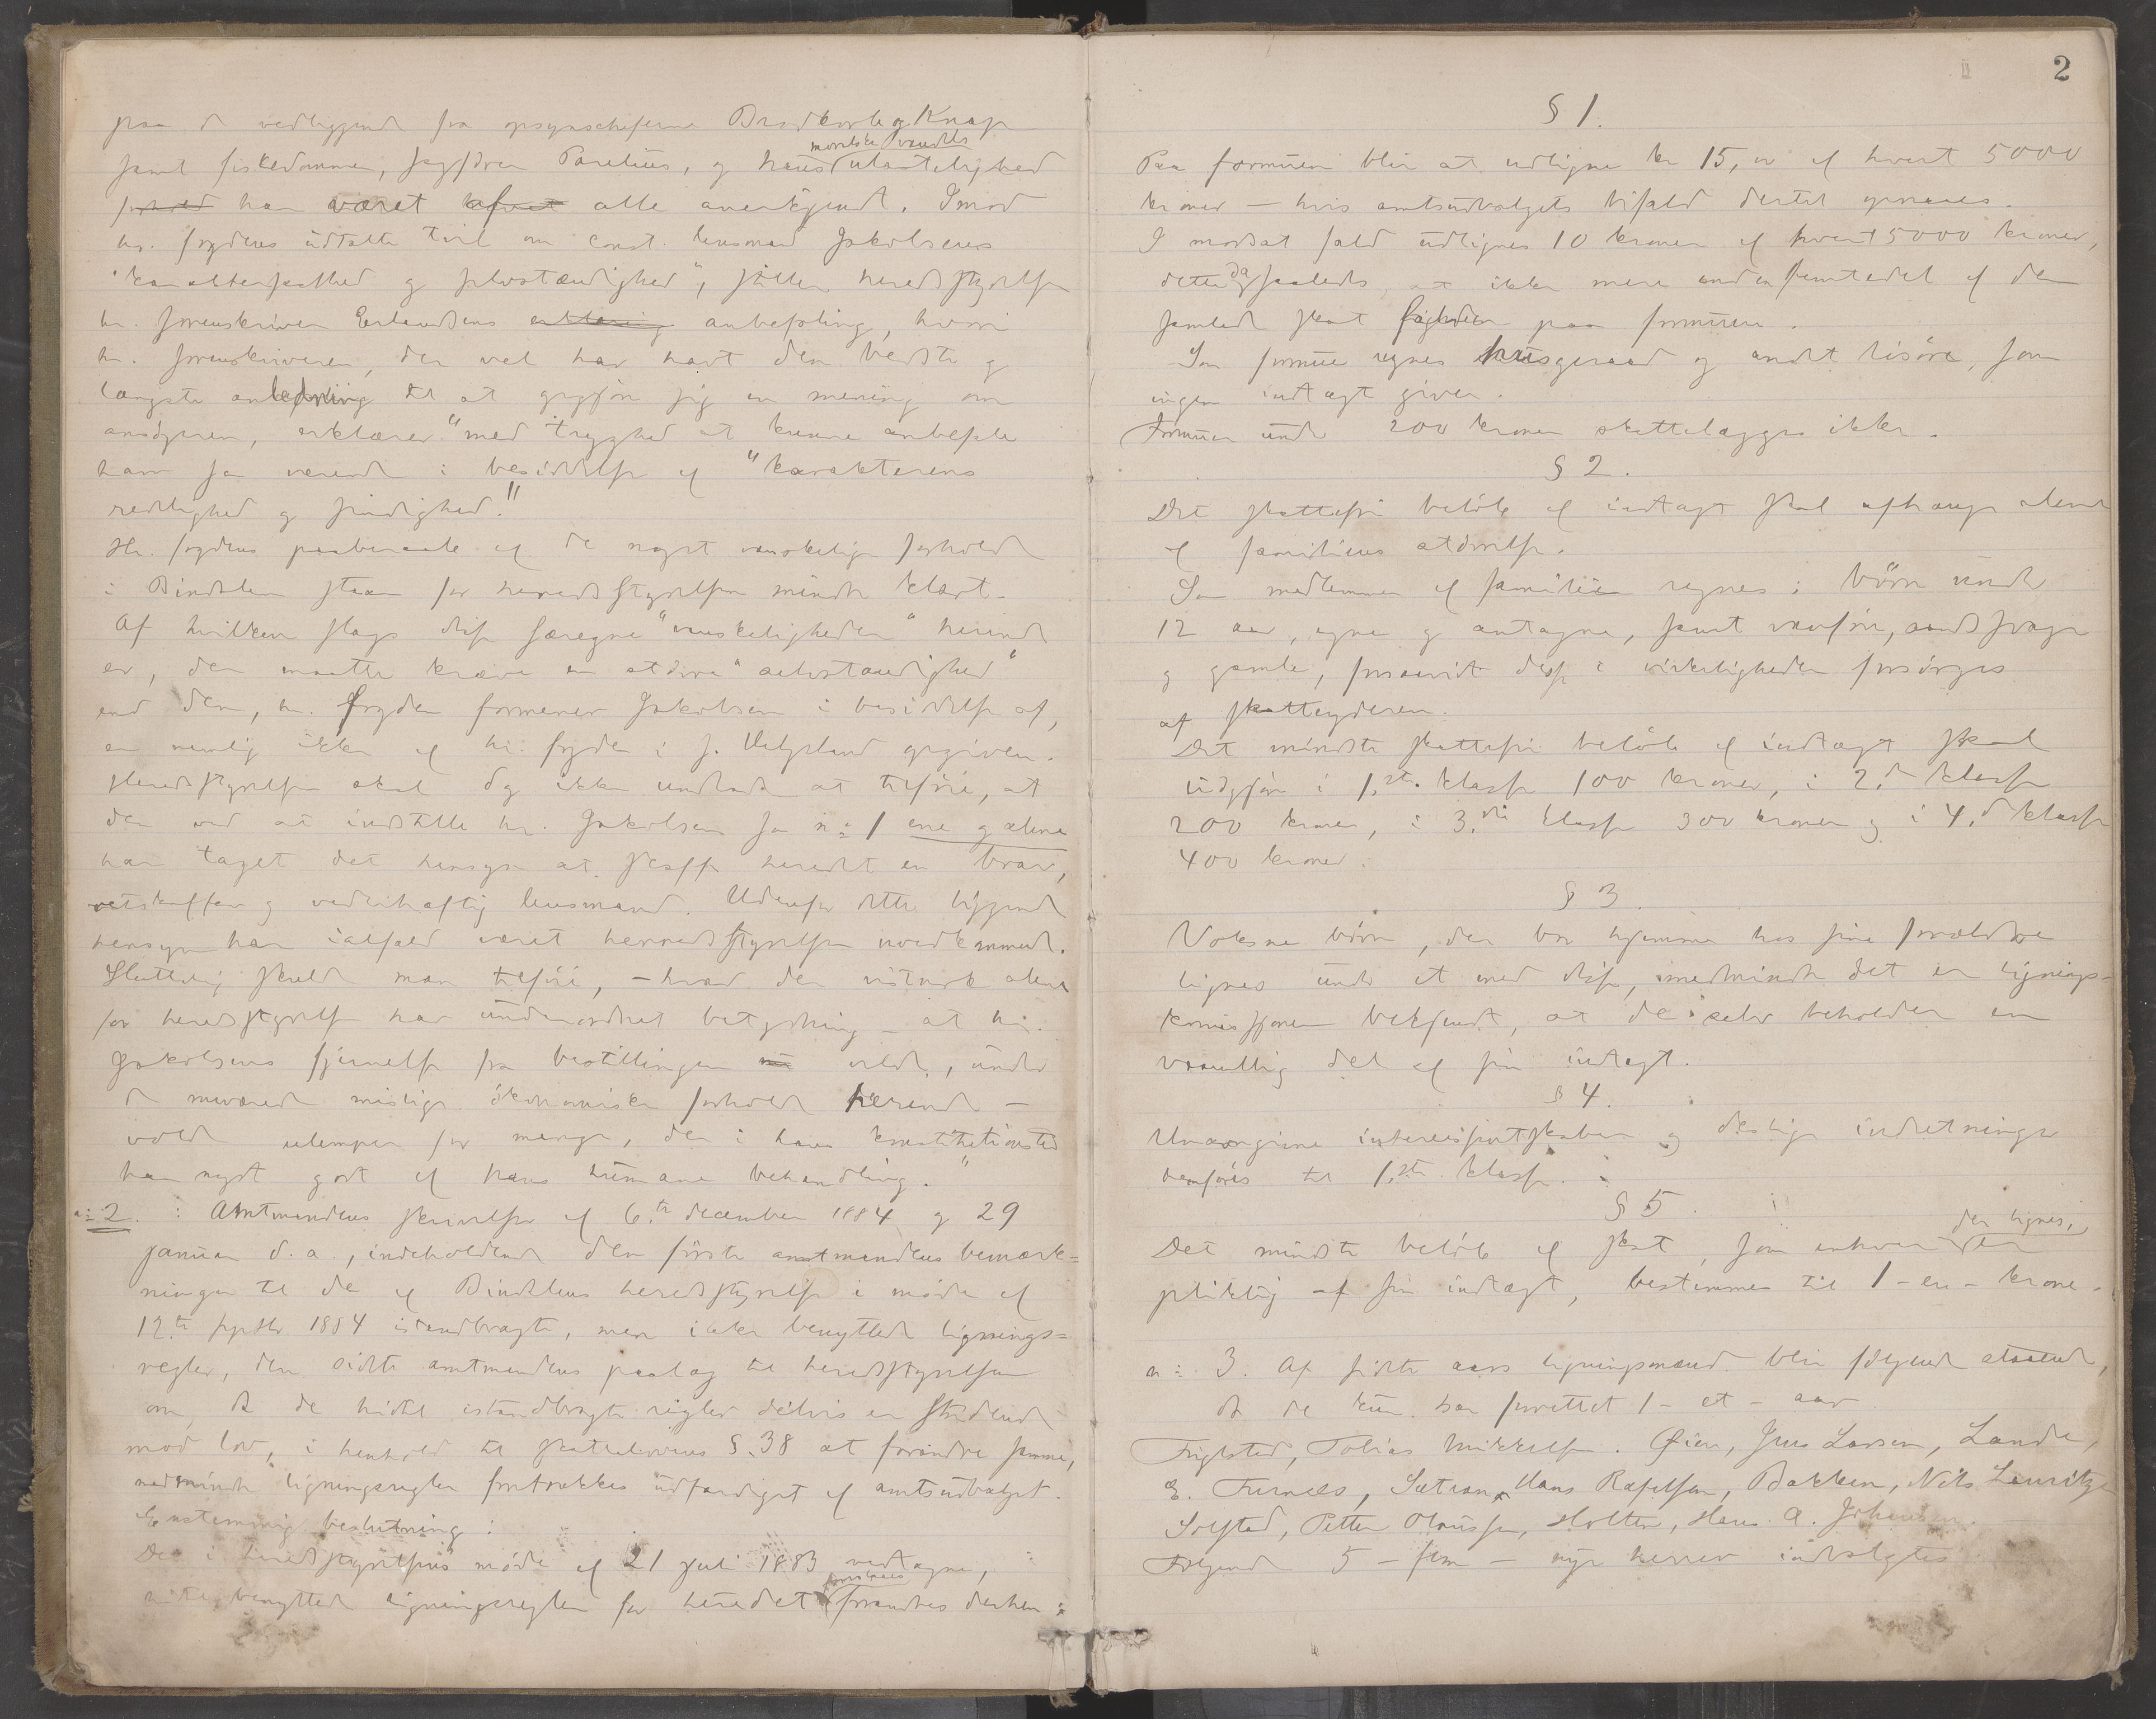 paa de vedliggende fra opsynscheferne Brodtkorb og Knap
samt fiskedommer, sagfører Parelius, og hans moralske vandels ulastelighed
forhold har været afvet alle anerkjendt. Imod
hr. fogdens udtalte tvil om const. lensmand Jakobsens
"karakterfasthed og selvstændighed", stiller heredsstyrelsen
hr. sorenskriver Erlandsens erklæring anbefaling, hvori
hr. sorenskriveren, der vel har havt den bedste og
længste anledning til at gjøre sig en mening om
ansøgeren, erklærer "med tryghed at kunne anbefale
ham som værende i besiddelse af "karakterens
redelighed og sindighed."
Hr. fogdens paaberaabe af de noget vanskelige forholde
i Bindalen staar for heredsstyrelsen mindre klart.
Af hvilken slags disse særegne "vanskeligheder" herinde
er, der maatte kræve en større "selvstændighed"
end den, hr. fogden formener Jakobsen i besiddelse af,
er nemlig ikke af hr. fogden i s. Helgeland opgiven.
Heredsstyrelsen skal dog ikke undlade at tilføie, at
den ved at indstille hr. Jakobsen som n: 1 ene og alene
har taget det hensyn at skaffe heredet en brav,
retskaffen og vederhæftig lensmand. Udenfor dette liggende
hensyn har ialfald været herredsstyrelsen uvedkommende.
Sluttelig skulde man tilføie, - hvad der vistnok alene
for heredsstyrelsen har underordnet betydning - at hr.
Jakobsens fjernelse fra bestillingen nu vilde, under
de nuværende mislige økonomiske forholde herinde -
volde ulemper for mange, der i hans konstitutionstid
har nydt godt af hans humane behandling."
n: 2. : Amtmandens skrivelse af 6.te december 1884 og 29
januar d. a., indeholdende den første amtmandens bemærk=
ninger til de af Bindalens heredsstyrelse i møde af
12.te septbr 1884 istandbragte, men ikke benyttede ligningsregler=
regler, den sidste amtmandens paalæg til heredsstyrelsen
om, da de hidtil istandbragte regler delvis er stridende
mod lov, i henhold til skattelovens §. 38 at forandre samme,
medmindre ligningsregler foretrækkes udfærdiget af amtsudvalget.
Enstemmig beslutning:
De i heredsstyrelsens møde af 21 juli 1883 vedtagne,
ikke benyttede ligningsregler for heredet forandres derhen:
2
§ 1.
Paa formuen blir at udligne kr 15, er af hvert 5000
kroner - hvis amtsudvalgets bifald dertil opnaaes.
I modsat fald udlignes 10 kroner af hvert 5000 kroner,
dette da saaledes, at ikke mere end en femtedel af den
samlede skat falder paa formuen.
Som formue regnes husgeraad og andet løsøre, som
ingen indtægt giver.
Formuer under 200 kroner skattelægges ikke.
§ 2.
Det skattefri beløb af indtægt skal afhænge alene
af familiens størrelse.
Som medlemmer af familien regnes: børn under
12 aar, egne og antagne, samt vanføre, sindssvage
og gamle, forsaavidt disse i virkeligheden forsørges
af skatteyderen.
Det mindste skattefri beløb af indtægt skal
udgjøre i 1.ste klasse 100 kroner, i 2.d klasse
200 kroner, i 3.die klasse 300 kroner og i 4.d klasse
400 kroner.
§ 3.
Voksne børn, der bor hjemme hos sine forældre
lignes under et med disse, medmindre det er lignings=
kommissionen bekjendt, at de selv beholder en
væsentlig del af sin indtægt.
§ 4.
Umyndige interessentskaber og deslige indretninger
henføres til 1.ste klasse.
§ 5.
Det mindste beløb af skat, som enhver der lignes, er
pliktig af sin indtægt, bestemmes til 1 - en - krone.
n: 3. Af sidste aars ligningsmænd blir følgende staaende,
da de kun har forrettet 1 - et - aar
Fuglstad, Tobias Mikkelsen. Øien, Jens Larsen, Lande,
E. Furnes, Sætran, Hans Rafelsen, Bakken, Nils Lauritz
Solstad, Petter Olaussen, Holten, Hans A. Johansen.
Følgende 5 - fem - nye herrer indvalgtes